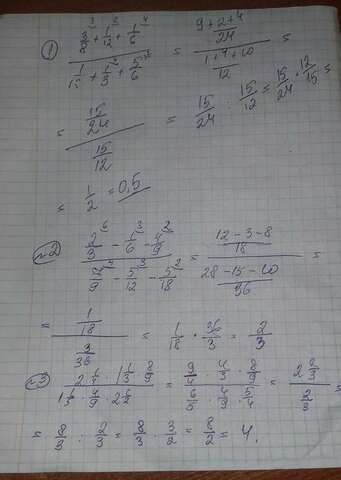 ① (3/8 + 1/12 + 1/6) / (1/12 + 1/3 + 5/6) = ((9+2+4)/24) / ((1+4+10)/12) =
= (15/24) / (15/12) = 15/24 : 15/12 = 15/24 · 12/15 =
= 1/2 = 0,5
№2 (2/3 - 1/6 - 4/9) / (7/9 - 5/12 - 5/18) = ((12-3-8)/18) / ((28-15-10)/36) =
= (1/18) / (3/36) = 1/18 · 36/3 = 2/3
№3 (2 1/4 · 1 1/3 · 8/9) / = (9/4 · 4/3 · 8/9) / (6/5 · 4/9 · 5/4) = (2 2/3) / (2/3) =
= 8/3 : 2/3 = 8/3 · 3/2 = 8/2 = 4.